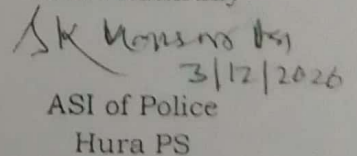 SK
3/12/2026
ASI of Police
Hura PS